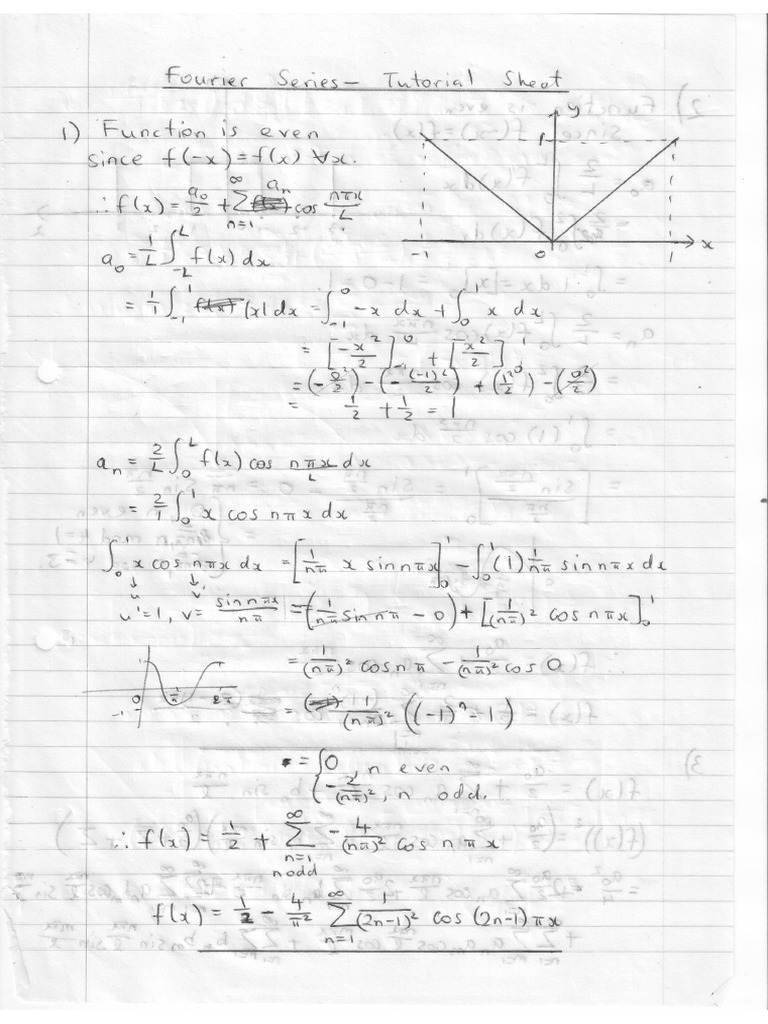 Fourier Series – Tutorial Sheet
1) Function is even
since f(-x) = f(x) ∀x.
∴ f(x) = a₀/2 + ∑_{n=1}^{∞} aₙ cos nπx/L
y
1
-1 0 1 x
a₀ = 1/L ∫_{-L}^{L} f(x) dx
= 1/1 ∫_{-1}^{1} |x| dx = ∫_{-1}^{0} -x dx + ∫_{0}^{1} x dx
= [-x²/2]_{-1}^{0} + [x²/2]_{0}^{1}
= (-0²/2) - (-(-1)²/2) + (1²/2) - (0²/2)
= 1/2 + 1/2 = 1
aₙ = 2/L ∫_{0}^{L} f(x) cos nπx/L dx
= 2/1 ∫_{0}^{1} x cos nπx dx
∫_{0}^{1} x cos nπx dx = [1/nπ x sin nπx]_{0}^{1} - ∫_{0}^{1} (1) 1/nπ sin nπx dx
↓ ↓
u v'
u' = 1, v = sin nπx/nπ = (1/nπ sin nπ - 0) + [1/(nπ)² cos nπx]_{0}^{1}
= 1/(nπ)² cos nπ - 1/(nπ)² cos 0
0 π 2π
-1
= 1/(nπ)² ((-1)ⁿ - 1)
= { 0, n even
-2/(nπ)², n odd.
∴ f(x) = 1/2 + ∑_{n=1, n odd}^{∞} - 4/(nπ)² cos nπx
f(x) = 1/2 - 4/π² ∑_{n=1}^{∞} 1/(2n-1)² cos (2n-1)πx